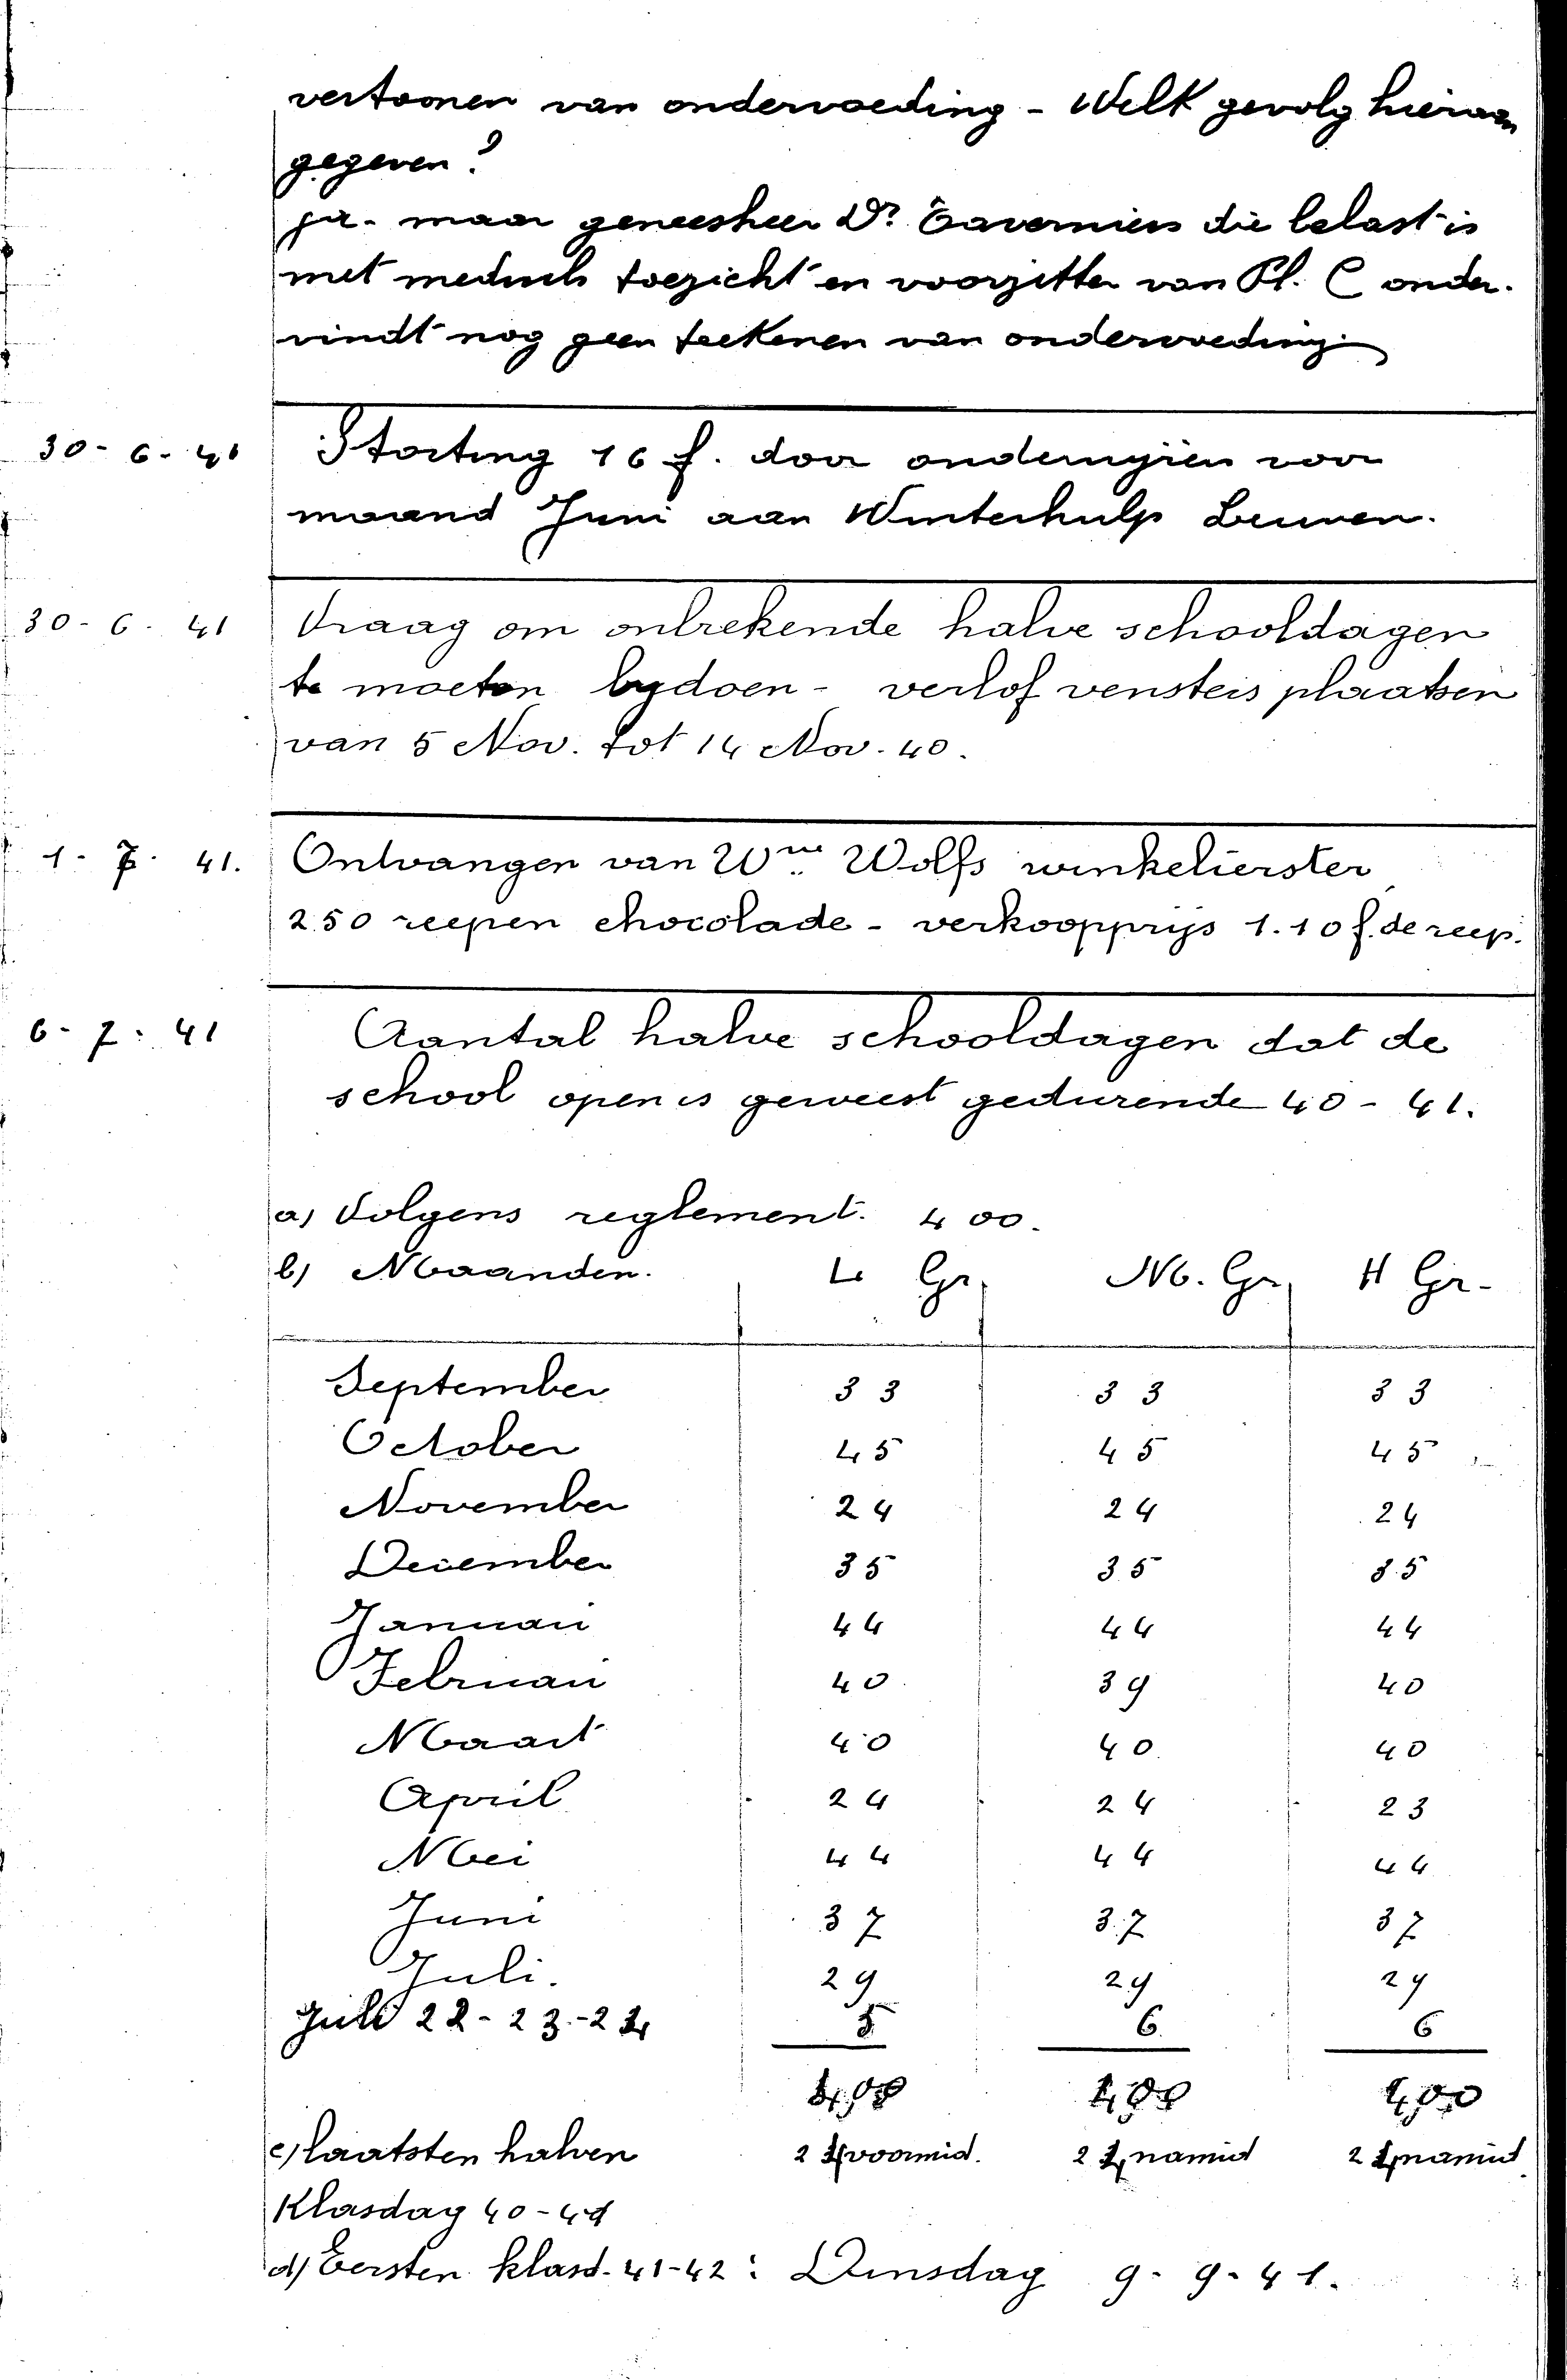 vertoonen van ondervoeding - Welk gevolg hieraan
gegeven?
ja - maar geneesheer Dr. Taverniers die belast is
met medisch toezicht en voorzitter van Pl. C onder-
vindt nog geen teekenen van ondervoeding
30 - 6 - 41 Storting 16 f. door onderwijzeres voor
maand Juni aan Winterhulp Leuven.
30 - 6 - 41 Vraag om ontbrekende halve schooldagen
te moeten bydoen - verlof vensters plaatsen
van 5 Nov. tot 14 Nov. 40.
1 - 7 - 41. Ontvangen van Wwe Wolfs winkelierster
250 reepen chocolade - verkoopprijs 1.10 f. de reep.
6 - 7 - 41 Aantal halve schooldagen dat de
school open is geweest gedurende 40 - 41.
a) Volgens reglement. 400.
b) Maanden. L Gr. M. Gr. H Gr-
September 33 33 33
October 45 45 45
November 24 24 24
December 35 35 35
Januari 44 44 44
Februari 40 39 40
Maart 40 40 40
April 24 24 23
Mei 44 44 44
Juni 37 37 37
Juli. 29 29 29
Juli 22 - 23 - 24 5 6 6
400 400 400
c) laatsten halven 24 voormid. 24 namid 24 namid
Klasdag 40 - 41
d) Eersten klasd. 41-42 : Dinsdag 9 - 9 - 41.